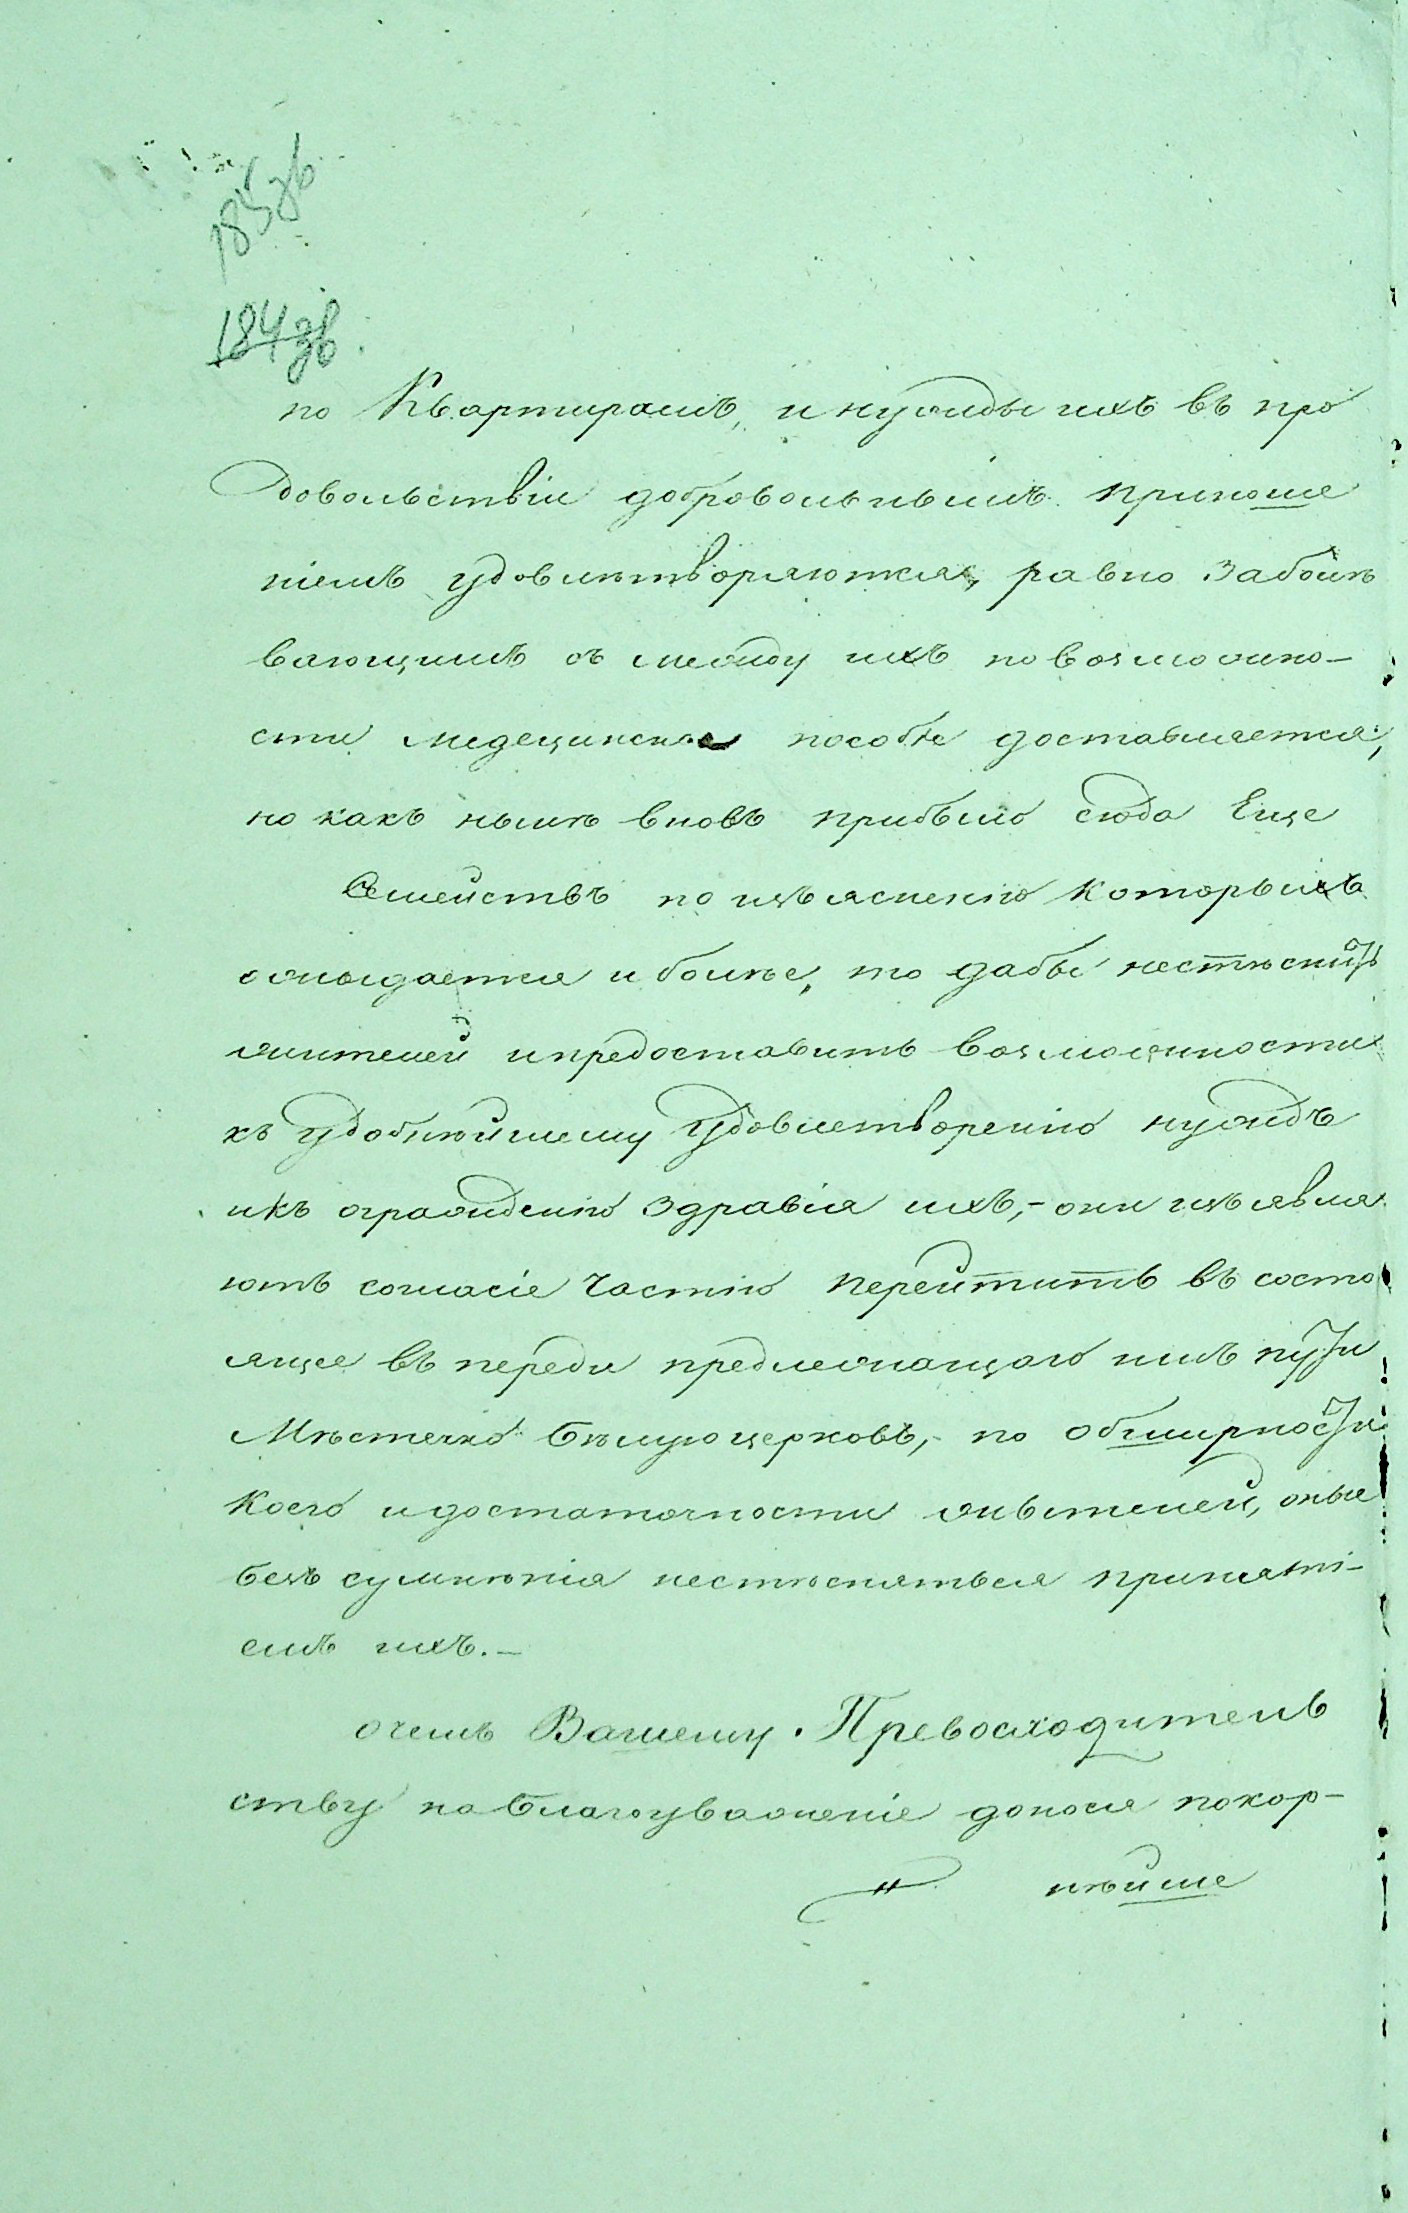 185 зв
184 зв.
по Квартирамъ, и нужды ихъ въ про
довольствіи добровольнымъ приноше
ніемъ удовлѣтворяются, равно заболѣ
вающимъ съ между ихъ по возможно-
сти медецинское пособіе доставляется,
но какъ нынѣ вновь прибыло сюда Еще
Семействъ по изъясненію которыхъ
ожидается и болѣе, то дабы нестѣснить
жителей и предоставить возможности
къ удобнѣйшему удовлетворенію нуждъ
и къ огражденію здравія ихъ,- они изъявля
ютъ согласіе частію перейтить въ состо
ящее въ переди предлежащаго имъ пути
Мѣстечко Бѣлуюцерковь,- по обширности
коего и достаточности жителей, оные
безъ сумнѣнія нестѣсняться приняті-
емъ ихъ.-
о чемъ Вашему Превосходитель
ству на благоуваженіе донося покор-
нѣйше